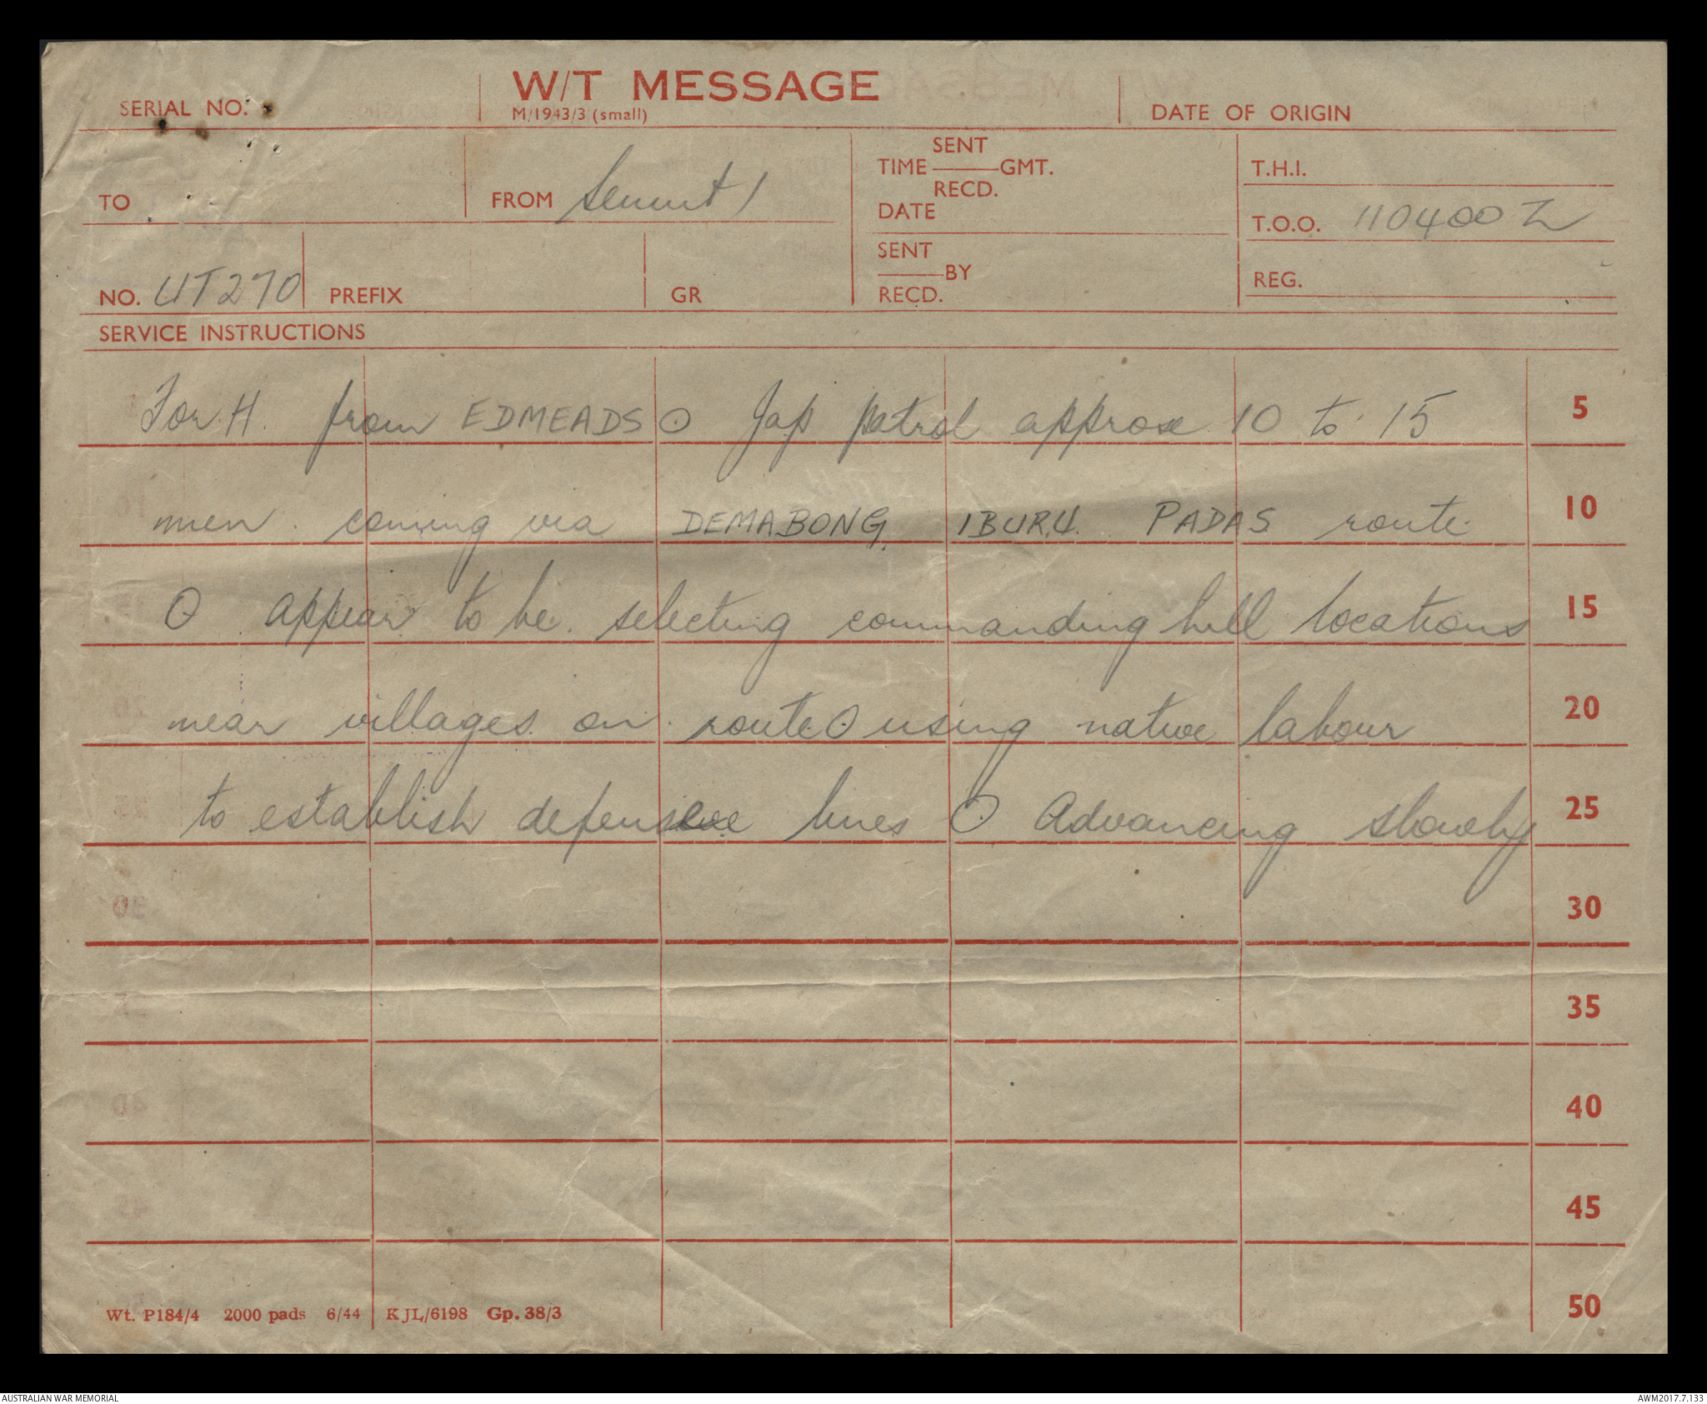 SERIAL NO.
W/T MESSAGE
M/1943/3 (small)
DATE OF ORIGIN
TO
FROM Semut 1
SENT
TIME ——— GMT.
RECD.
DATE
T.H.I.
T.O.O. 110400 Z
NO. UT270
PREFIX
GR
SENT
——— BY
RECD.
REG.
SERVICE INSTRUCTIONS
For H. from EDMEADS O Jap patrol approx 10 to 15 5
men coming via DEMABONG IBURU PADAS route 10
O appear to be selecting commanding hill locations 15
near villages on route O using native labour 20
to establish defensive lines O Advancing slowly 25
30
35
40
45
50
Wt. P184/4 2000 pads 6/44 KJL/6198 Gp. 38/3
AUSTRALIAN WAR MEMORIAL
AWM2017.7.133